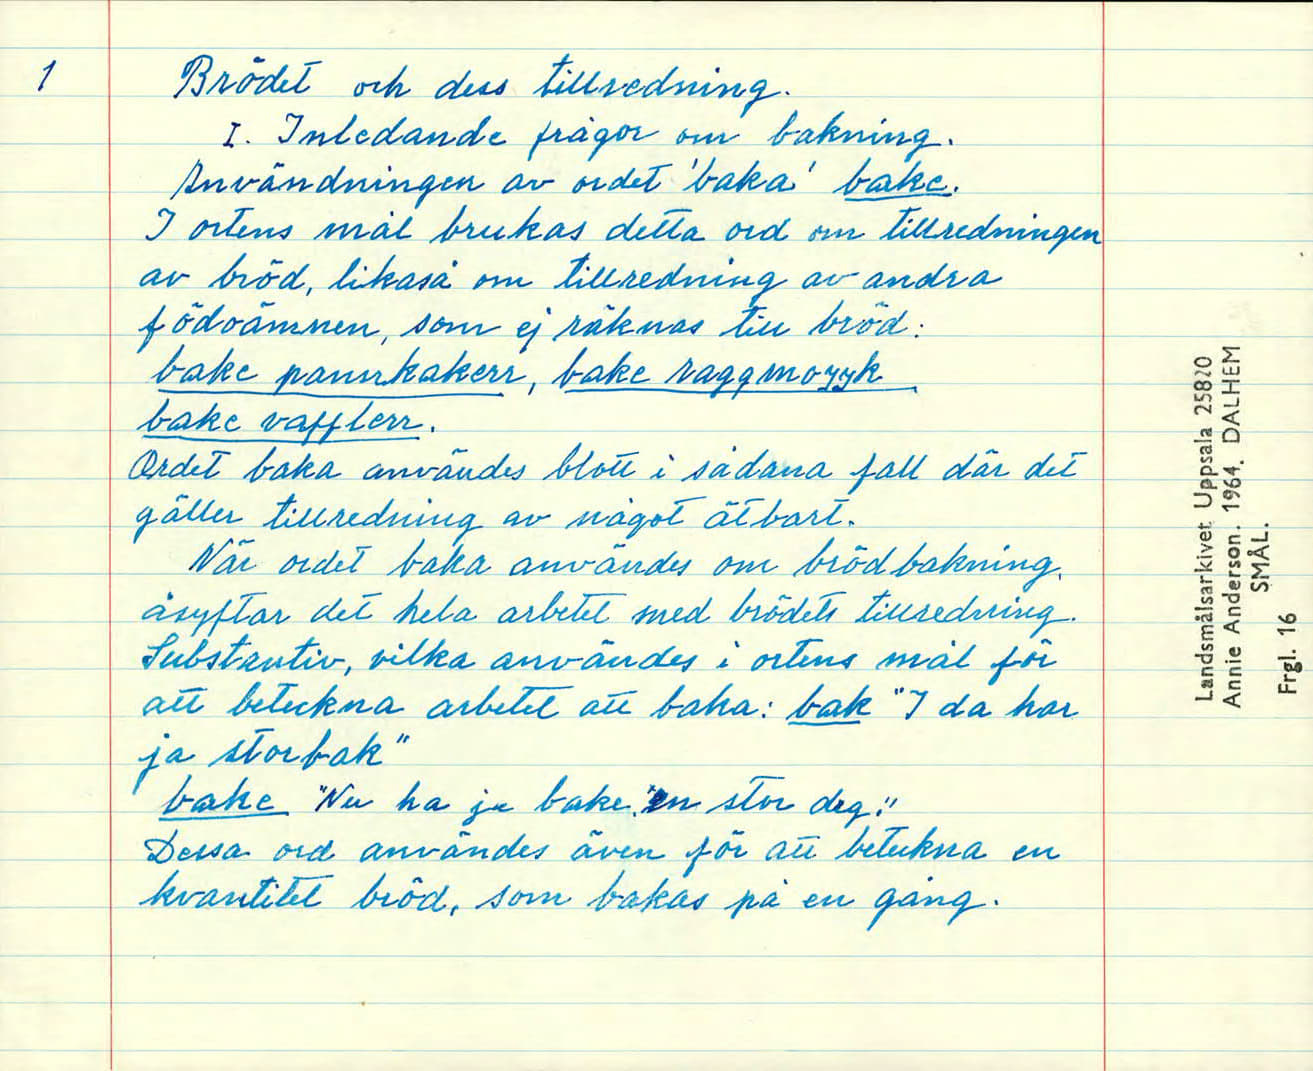 1
Brödet och dess tillredning.
I. Inledande frågor om bakning.
Användningen av ordet 'baka' bake.
I ortens mål brukas detta ord om tillredningen
av bröd, likaså om tillredning av andra
födoämnen, som ej räknas till bröd:
bake pannkakerr, bake raggmoyyk
bake vafflerr.
Ordet baka användes blott i sådana fall där det
gäller tillredning av något ätbart.
När ordet baka användes om brödbakning,
åsyftar det hela arbetet med brödets tillredning.
Substantiv, vilka användes i ortens mål för
att beteckna arbetet att baka: bak "I da har
ja storbak"
bake "Nu ha ja bake. en stor deg."
Dessa ord användes även för att beteckna en
kvantitet bröd, som bakas på en gång.
Landsmålsarkivet Uppsala 25820
Annie Anderson. 1964. DALHEM
SMÅL.
Frgl. 16